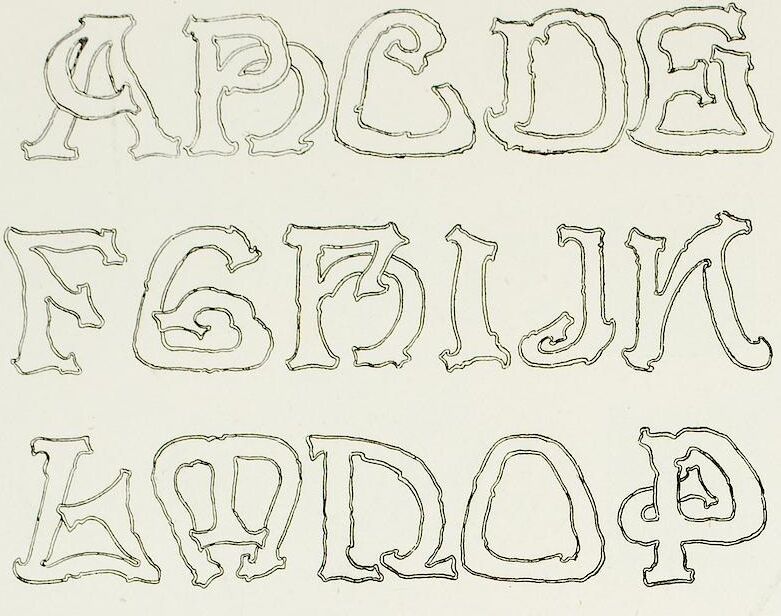 ABCDE
FGHIJK
LMNOP